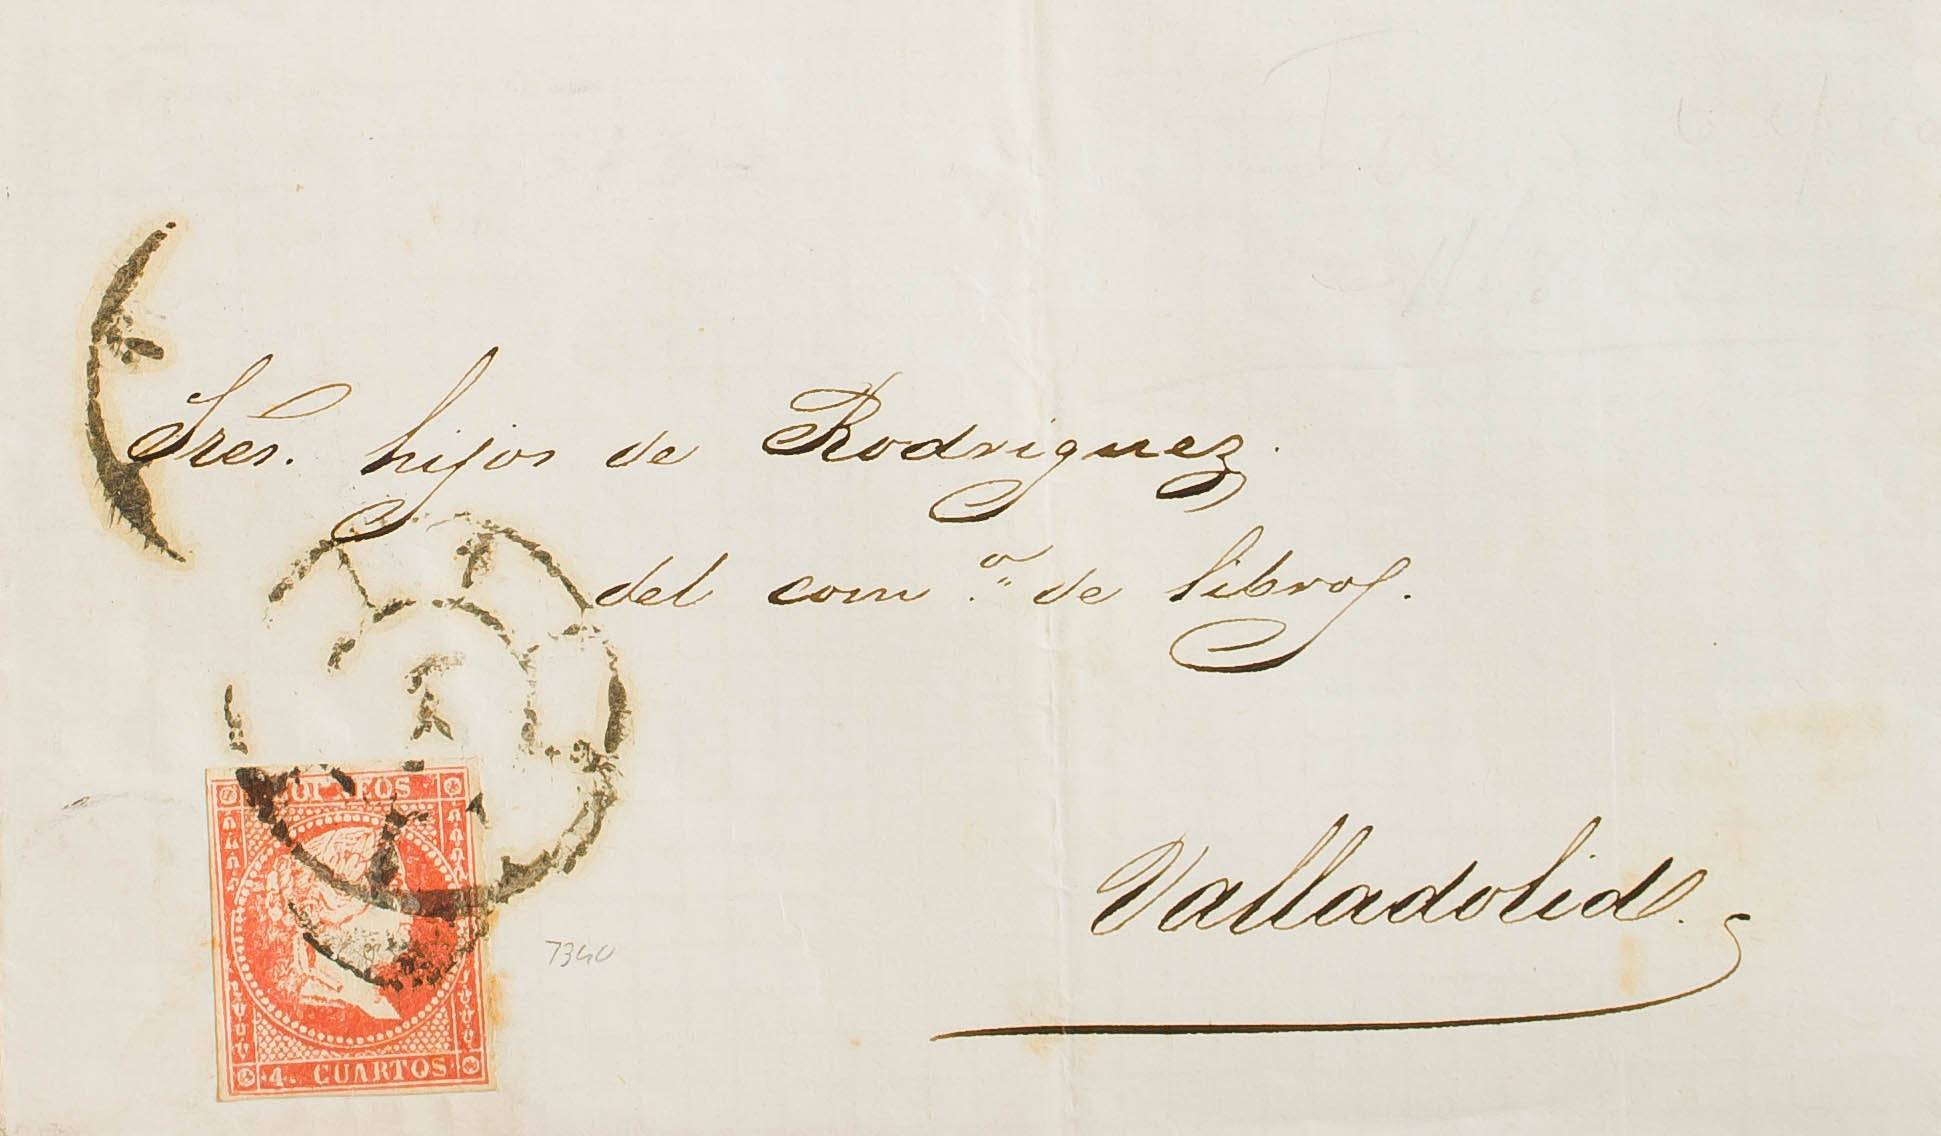 Sres. hijos de Rodriguez.
del com.º de libros.
Valladolid.
CORREOS
4. CUARTOS
7340